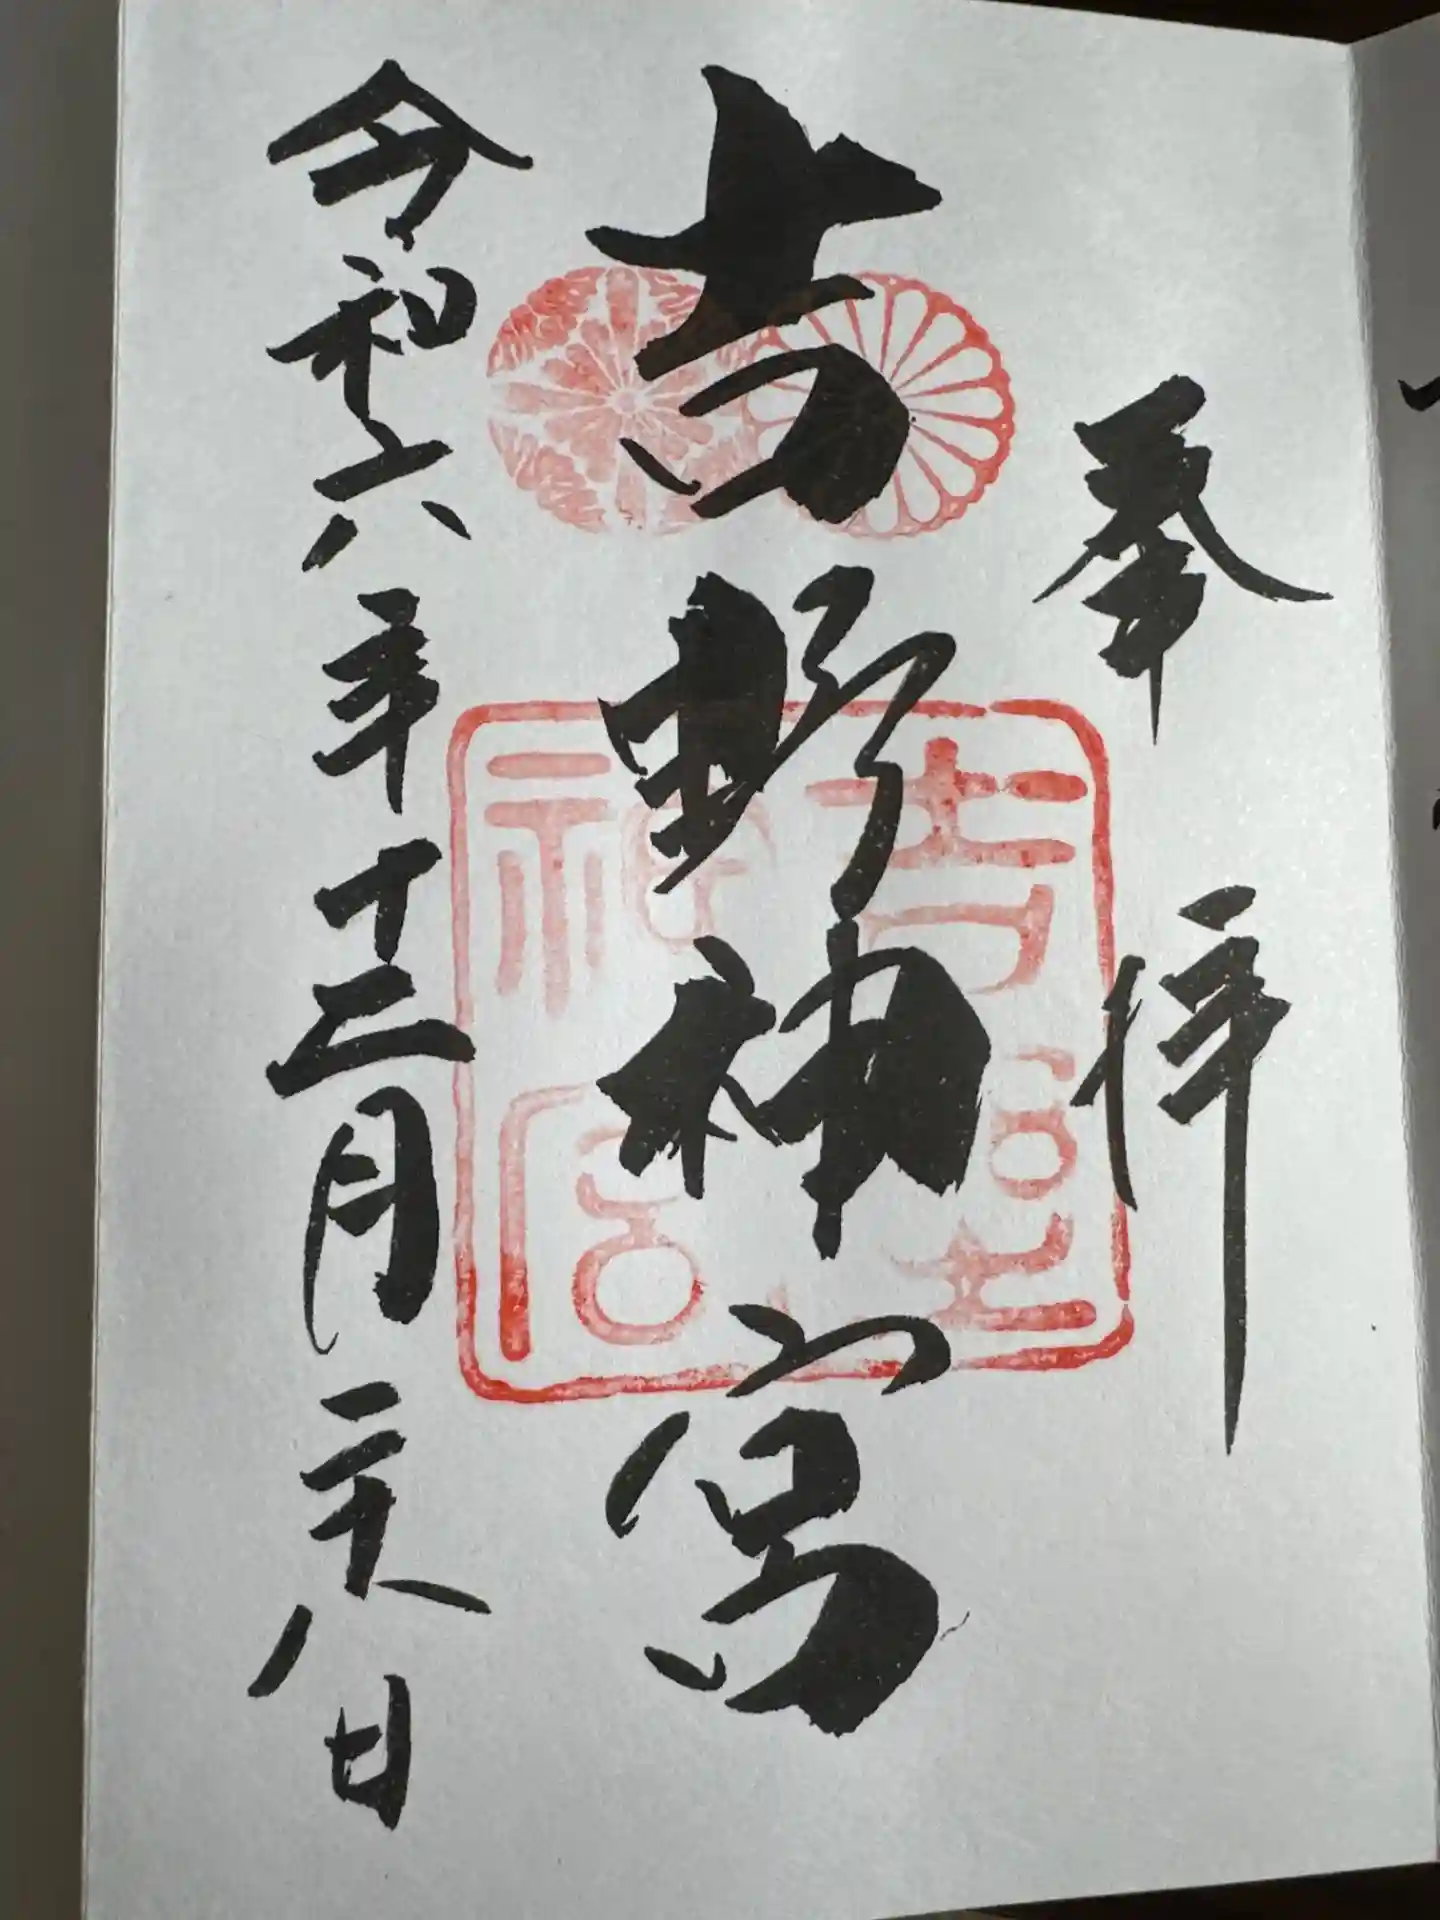 奉拝
吉野神宮
令和六年十二月二十八日
吉野
神宮